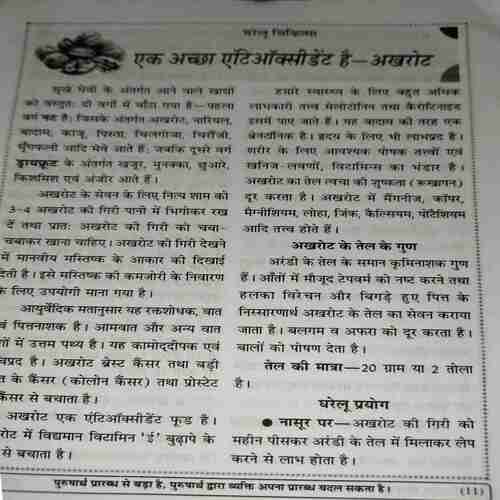 घरेलू चिकित्सा
एक अच्छा एंटिऑक्सीडेंट है—अखरोट
सूखे मेवों के अंतर्गत आने वाले खाद्यों
को वस्तुतः दो वर्गों में बाँटा गया है—पहला
वर्ग वह है; जिसके अंतर्गत अखरोट, नारियल,
बादाम, काजू, पिस्ता, चिलगोजा, चिरौंजी,
मूँगफली आदि मेवे आते हैं; जबकि दूसरे वर्ग
ड्रायफ्रूट के अंतर्गत खजूर, मुनक्का, छुआरे,
किशमिश एवं अंजीर आते हैं।
अखरोट के सेवन के लिए नित्य शाम को
3-4 अखरोट की गिरी पानी में भिगोकर रख
दें तथा प्रातः अखरोट की गिरी को चबा-
चबाकर खाना चाहिए। अखरोट की गिरी देखने
में मानवीय मस्तिष्क के आकार की दिखाई
देती है। इसे मस्तिष्क की कमजोरी के निवारण
के लिए उपयोगी माना गया है।
आयुर्वेदिक मतानुसार यह रक्तशोधक, वात
एवं पित्तनाशक है। आमवात और अन्य वात
गों में उत्तम पथ्य है। यह कामोद्दीपक एवं
वप्रद है। अखरोट ब्रेस्ट कैंसर तथा बड़ी
त के कैंसर (कोलोन कैंसर) तथा प्रोस्टेट
कैंसर से बचाता है।
अखरोट एक एंटिऑक्सीडेंट फूड है।
रोट में विद्यमान विटामिन 'ई' बुढ़ापे के
से बचाता है।
हमारे स्वास्थ्य के लिए बहुत अधिक
लाभकारी तत्त्व मेलोटोनिन तथा कैरोटिनाइड
इसमें पाए जाते हैं। यह बादाम की तरह एक
ब्रेनटॉनिक है। हृदय के लिए भी लाभप्रद है।
शरीर के लिए आवश्यक पोषक तत्त्वों एवं
खनिज-लवणों, विटामिन्स का भंडार है।
अखरोट का तेल त्वचा की शुष्कता (रूखापन)
दूर करता है। अखरोट में मैंगनीज, कॉपर,
मैग्नीशियम, लोहा, जिंक, कैल्सियम, पोटैशियम
आदि तत्त्व होते हैं।
अखरोट के तेल के गुण
अरंडी के तेल के समान कृमिनाशक गुण
हैं। आँतों में मौजूद टेपवर्म को नष्ट करने तथा
हलका विरेचन और बिगड़े हुए पित्त के
निस्सारणार्थ अखरोट के तेल का सेवन कराया
जाता है। बलगम व अफरा को दूर करता है।
बालों को पोषण देता है।
तेल की मात्रा—20 ग्राम या 2 तोला
है।
घरेलू प्रयोग
● नासूर पर—अखरोट की गिरी को
महीन पीसकर अरंडी के तेल में मिलाकर लेप
करने से लाभ होता है।
पुरुषार्थ प्रारब्ध से बड़ा है, पुरुषार्थ द्वारा व्यक्ति अपना प्रारब्ध बदल सकता है। (11)